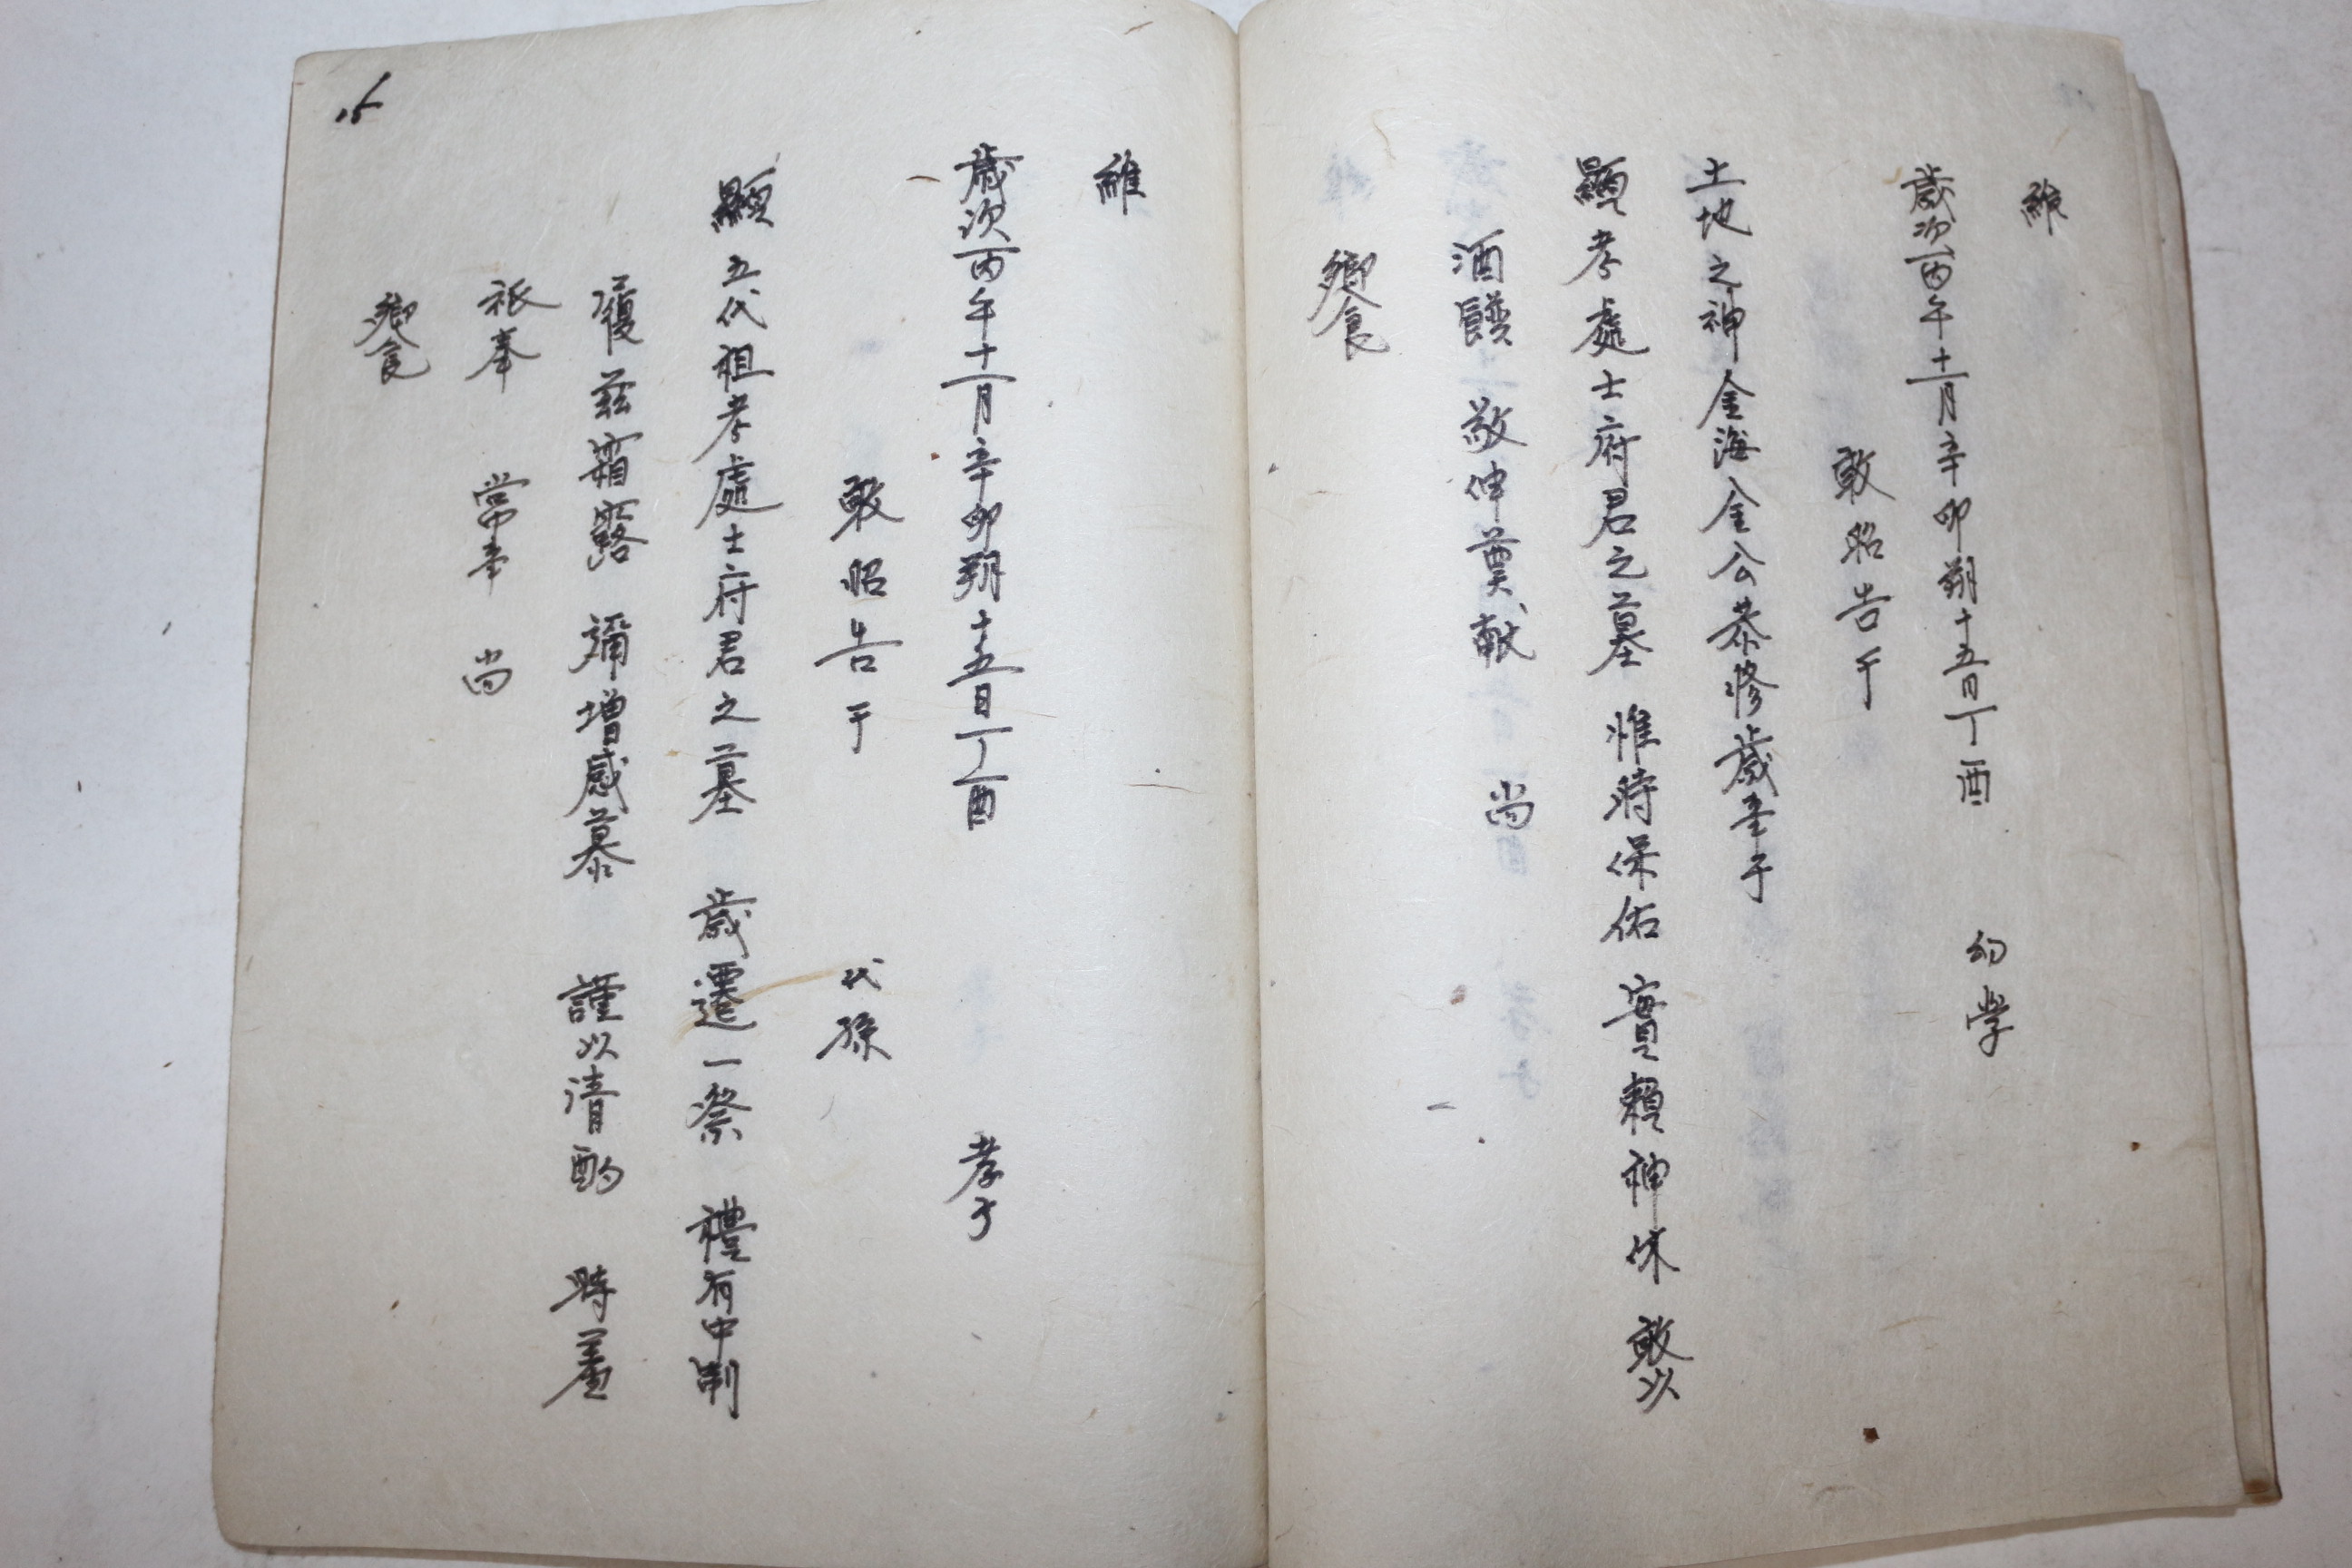 維
歲次丙午十一月辛卯朔十五日丁酉 幼學
敢昭告于
土地之神金海金公恭修歲事于
顯考處士府君之墓 惟時保佑 實賴神休 敢以
酒饌 敬伸奠献 尚
饗
維
歲次丙午十一月辛卯朔十五日丁酉 孝子
敢昭告于 代孫
顯五代祖考處士府君之墓 歲遷一祭 禮有中制
履茲霜露 彌增感慕 謹以清酌 時羞
祇奉 常事 尚
饗